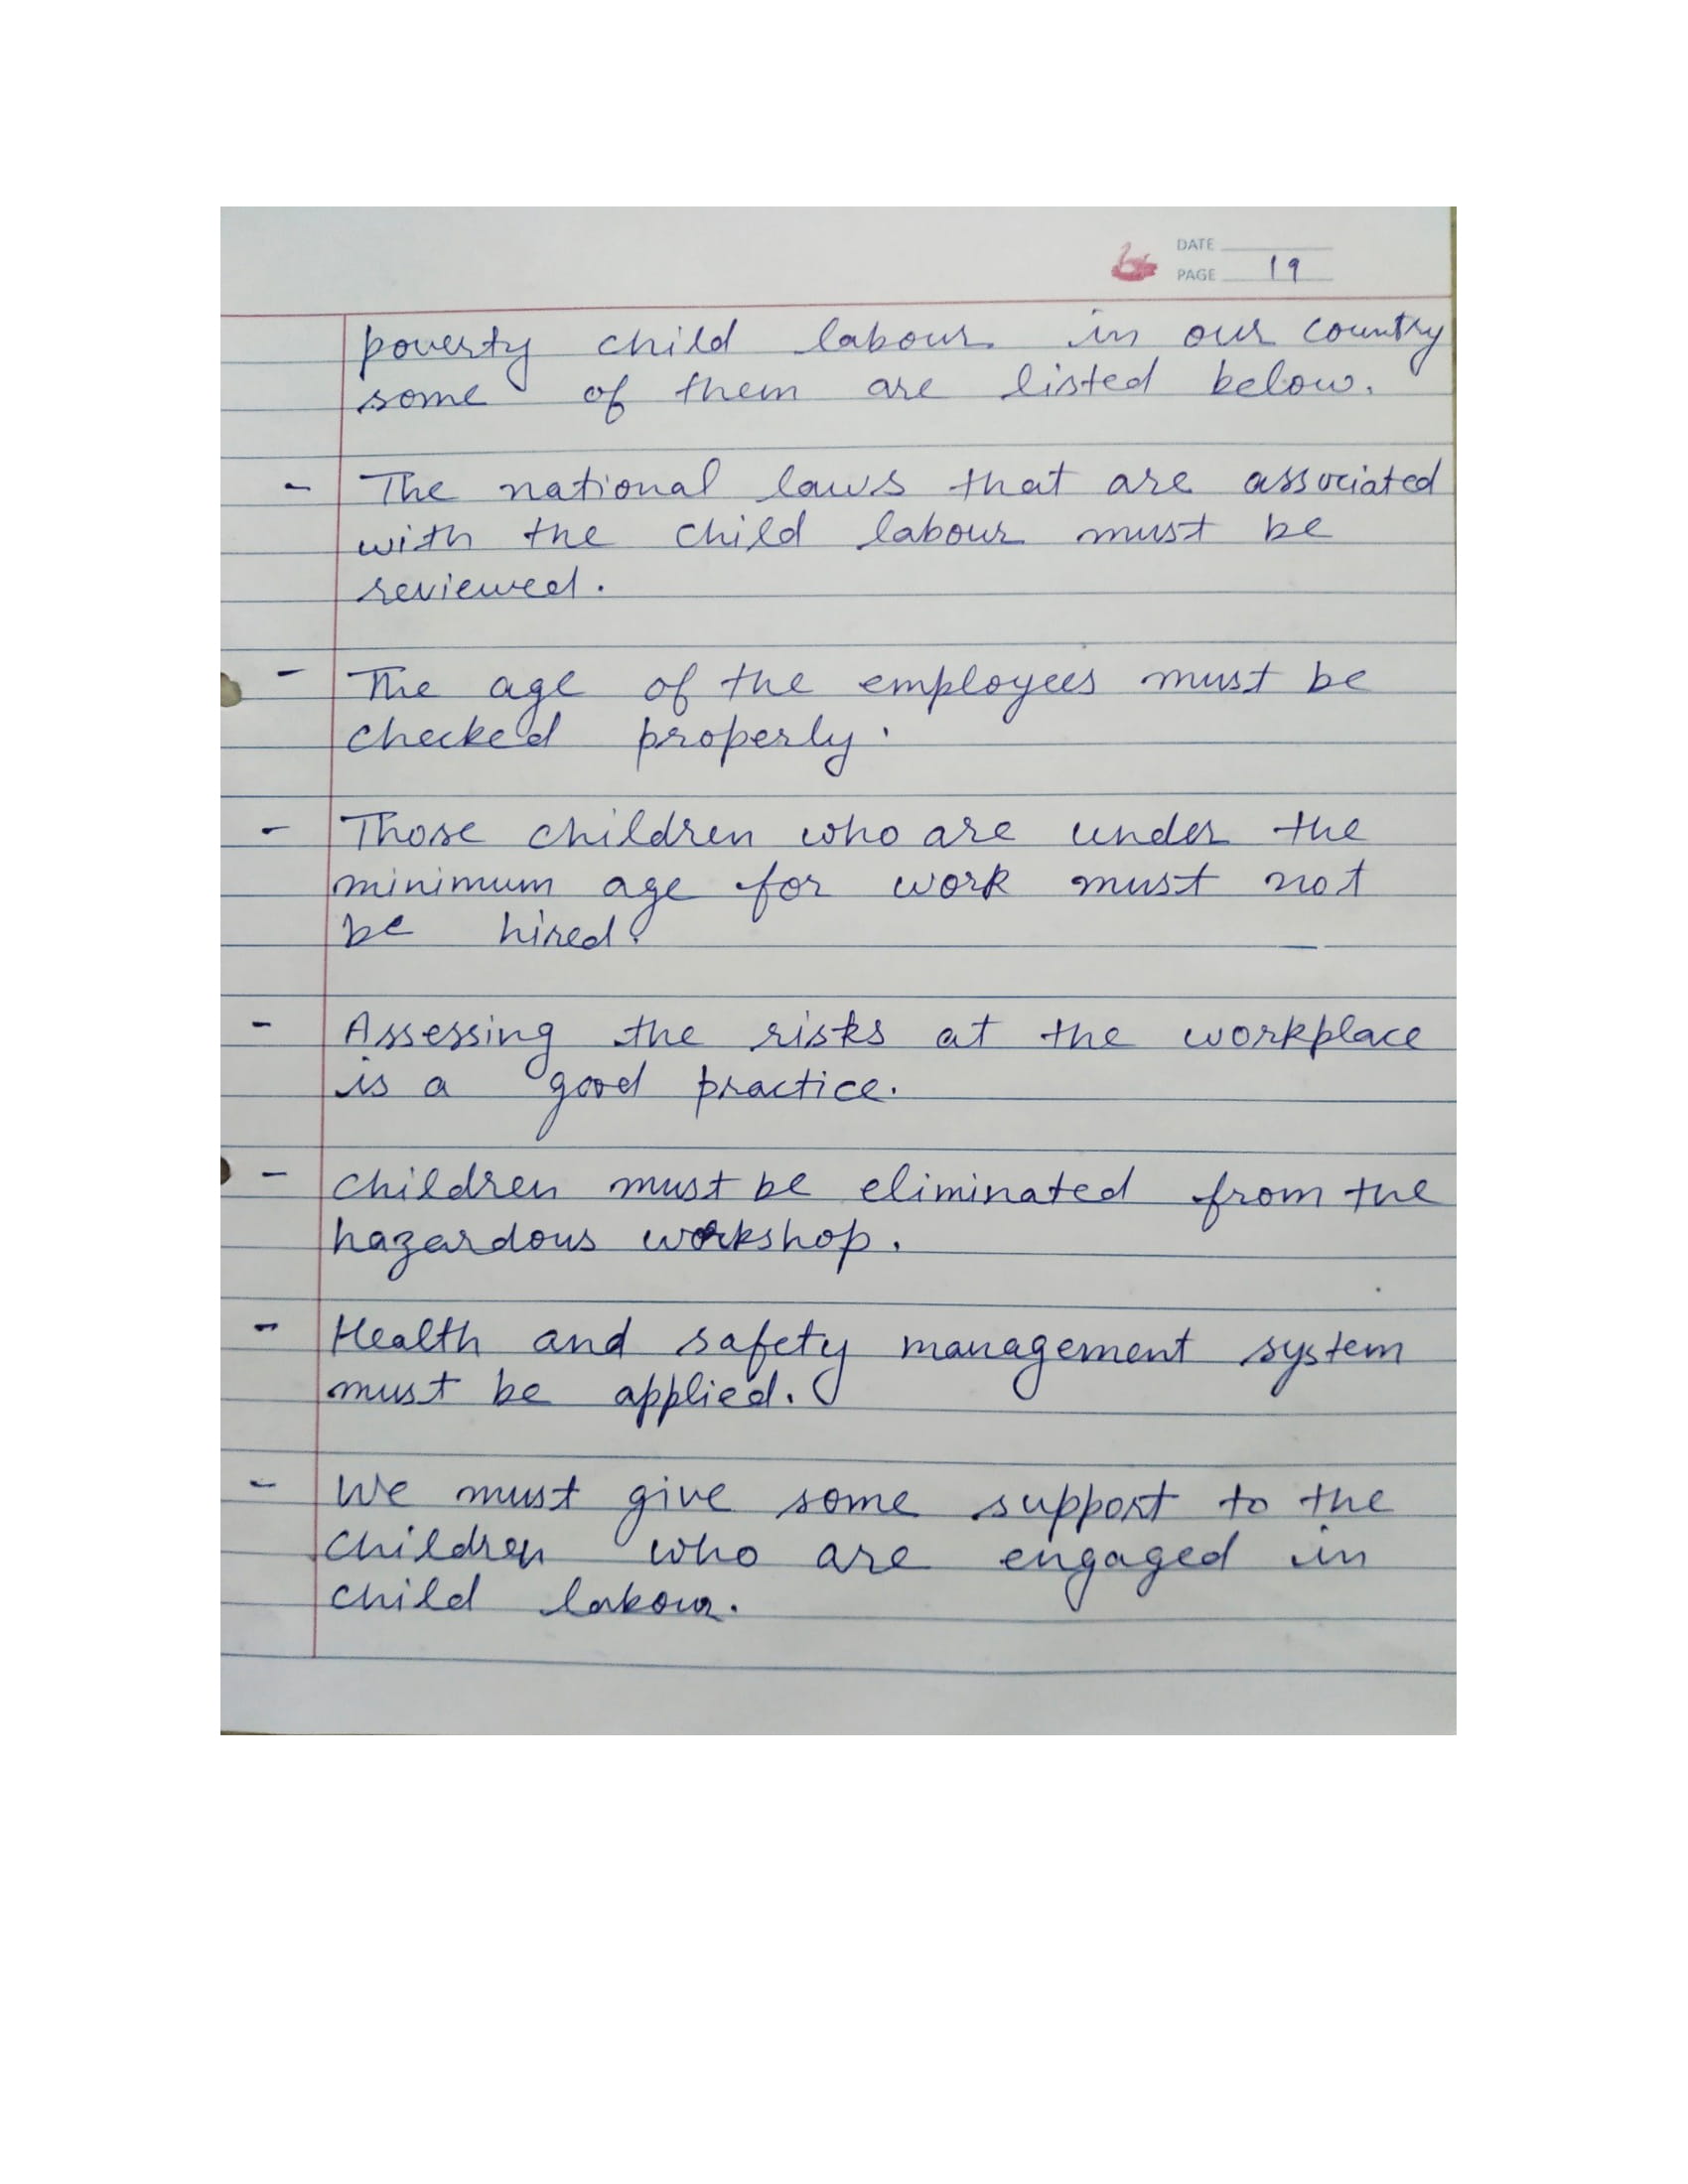 DATE
PAGE 19
poverty child labour in our country
some of them are listed below.
- The national laws that are associated
with the child labour must be
reviewed.
- The age of the employees must be
checked properly.
- Those children who are under the
minimum age for work must not
be hired.
- Assessing the risks at the workplace
is a good practice.
- children must be eliminated from the
hazardous workshop.
- Health and safety management system
must be applied.
- We must give some support to the
children who are engaged in
child labour.